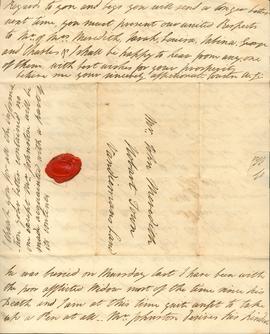 Regards to you and begs you will send a longer letter
next time you must present our united Respects
to Mr & Mrs Meredith, Sarah, Louisa, Sabina, George
and Charles & I shall be happy to hear from any one
of them with best wishes for your prosperity
believe me your sincerely affectionate
Mr John Meredith
Hobart Town
Vandiemans Land
I thank you for all the informa
tion
made acquainted with a part of
its contents
he was buried on Thursday last I have been with
the poor afflicted Widow most of the time since his
death and I am at this time quite unfit to take
up a Pen at all. Mr Johnston desires his kind